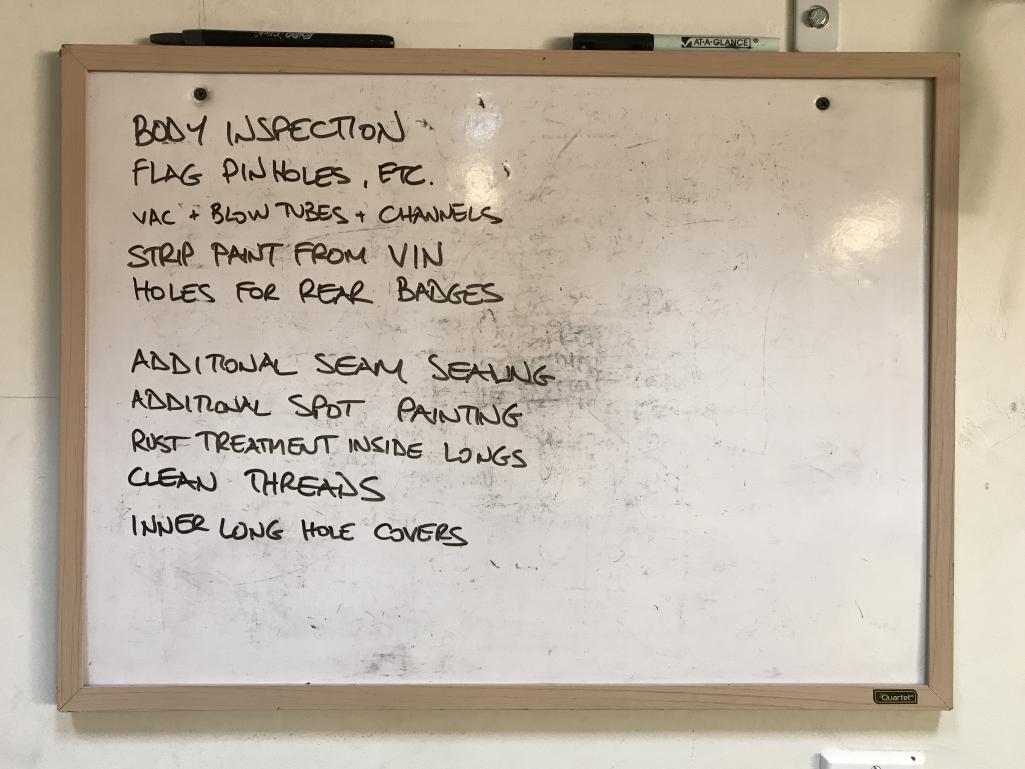 AT-A-GLANCE
BODY INSPECTION
FLAG PINHOLES, ETC.
VAC + BLOW TUBES + CHANNELS
STRIP PAINT FROM VIN
HOLES FOR REAR BADGES
ADDITIONAL SEAM SEALING
ADDITIONAL SPOT PAINTING
RUST TREATMENT INSIDE LONGS
CLEAN THREADS
INNER LONG HOLE COVERS
Quartet